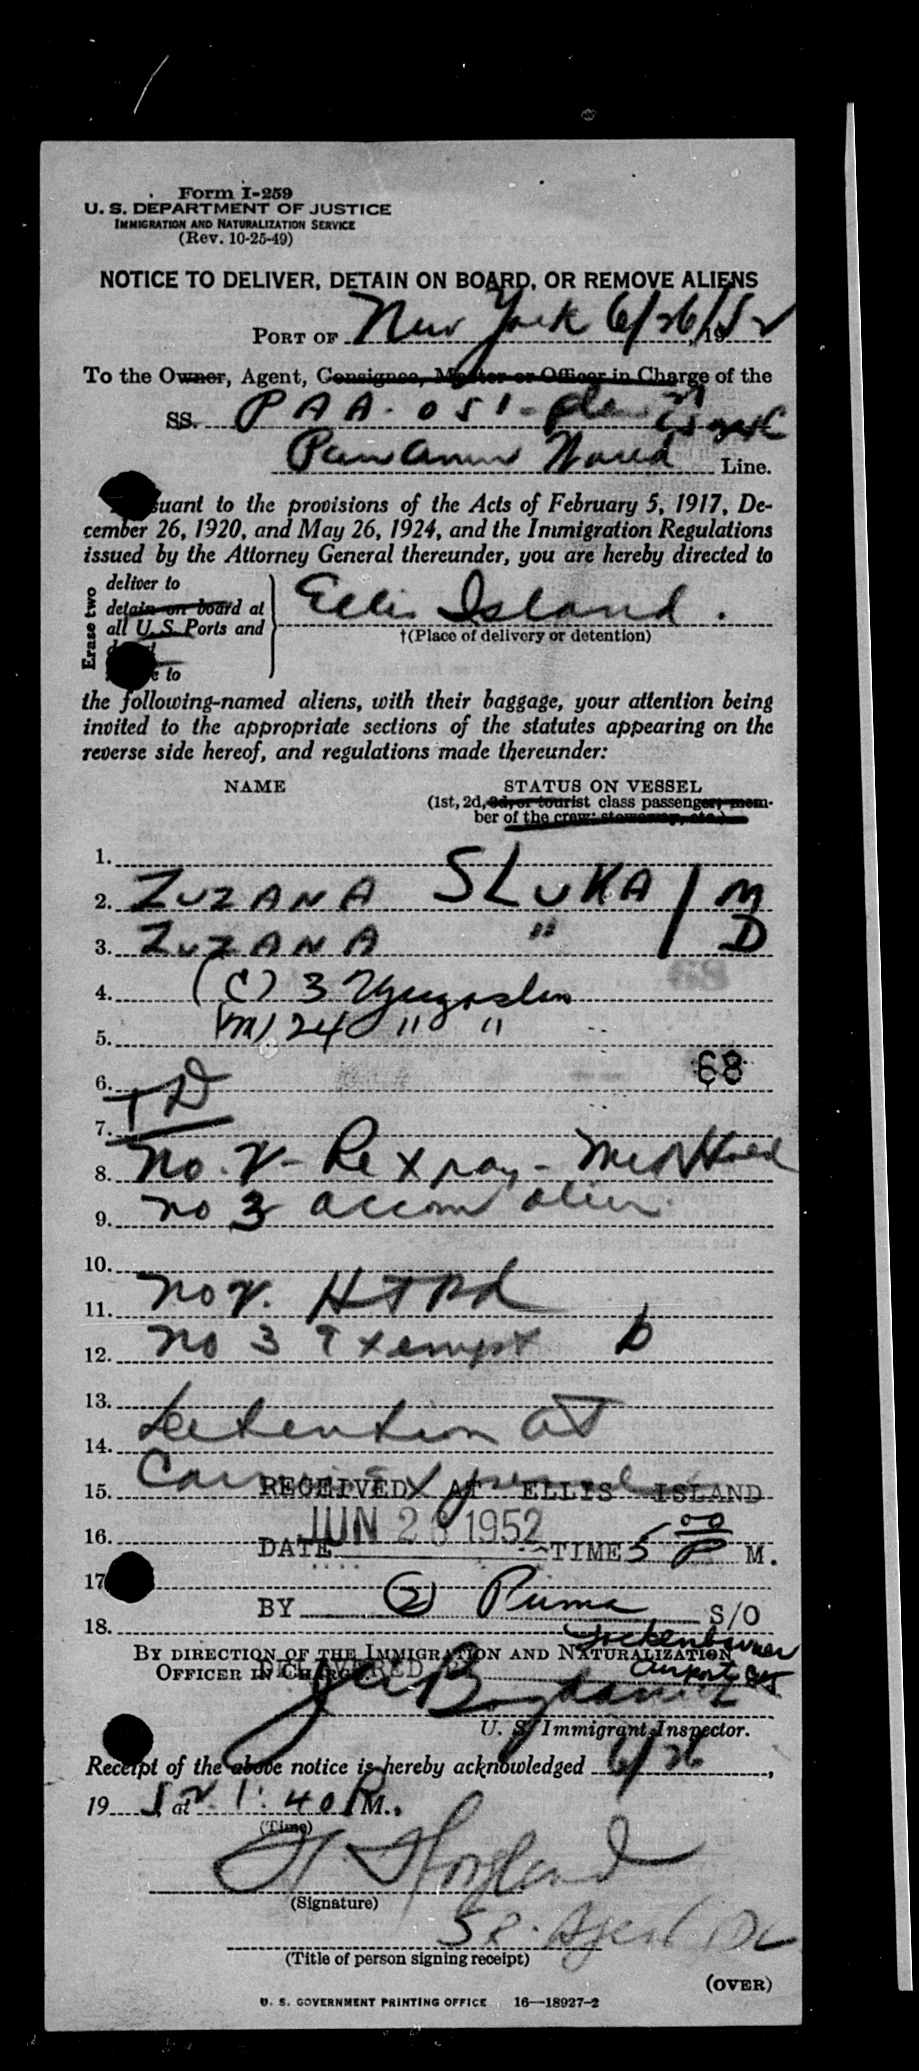 Form I-259
U. S. DEPARTMENT OF JUSTICE
IMMIGRATION AND NATURALIZATION SERVICE
(Rev. 10-25-49)
NOTICE TO DELIVER, DETAIN ON BOARD, OR REMOVE ALIENS
PORT OF New York 6/26/52, 19
To the Owner, Agent, Consignee, Master or Officer in Charge of the
SS. PAA-051-
Pan Amer World Line.
suant to the provisions of the Acts of February 5, 1917, De-
cember 26, 1920, and May 26, 1924, and the Immigration Regulations
issued by the Attorney General thereunder, you are hereby directed to
Erase two
deliver to
detain on board at
all U. S. Ports and
to
Ellis Island.
†(Place of delivery or detention)
the following-named aliens, with their baggage, your attention being
invited to the appropriate sections of the statutes appearing on the
reverse side hereof, and regulations made thereunder:
NAME STATUS ON VESSEL
(1st, 2d, 3d, or tourist class passenger; mem-
ber of the crew; stowaway, etc.)
1.
2. ZUZANA SLUKA M
3. ZUZANA " D
4. (C) 3 Yugoslav
5. (M) 24 " "
68
6. TD
7.
8. No. 2 - Re X ray - Med Hold
9. No 3 accom alien
10.
11. No 2. HTPd
12. No 3 Exempt D
13.
14. Detention at
15. Carrier Expense
RECEIVED AT ELLIS ISLAND
16. DATE JUN 26 1952 TIME 5 00 P M.
17
BY (2) Puma S/O
18.
BY DIRECTION OF THE IMMIGRATION AND NATURALIZATION
OFFICER IN CHARGE.
DELIVERED
Airport
U. S. Immigrant Inspector.
Receipt of the above notice is hereby acknowledged 6/26,
19 52 at 1:40 P M.,
(Time)
(Signature)
(Title of person signing receipt)
(OVER)
U. S. GOVERNMENT PRINTING OFFICE 16—18927-2